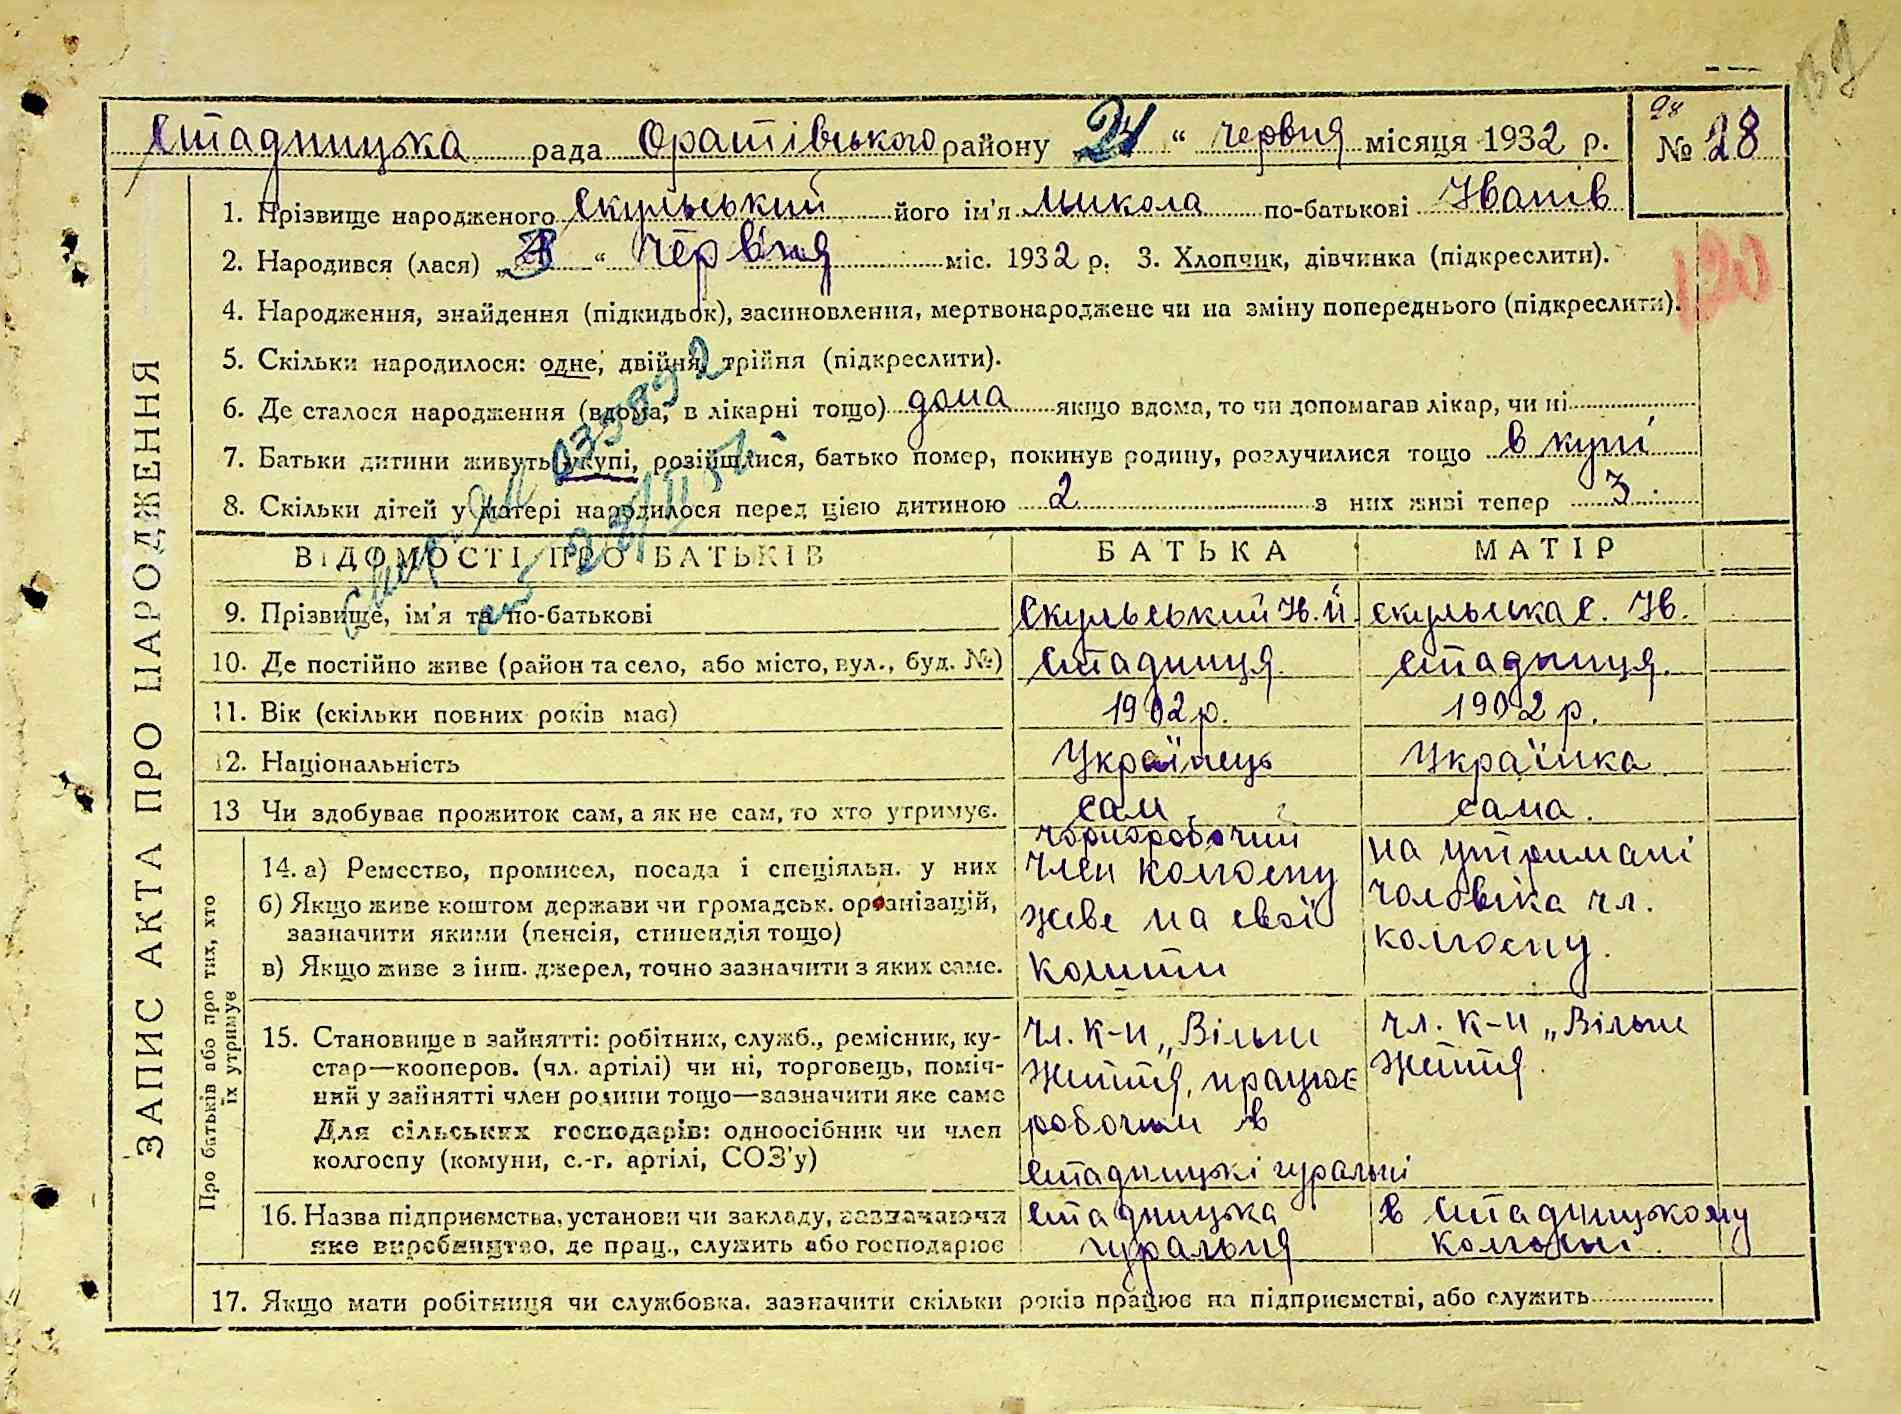 137
Стадницька рада Оратівського району 24 " червня місяця 1932 р.
28
№ 28
1. Прізвище народженого Скульський його ім'я Микола по-батькові Іванів
2. Народився (лася) „ " Червіня міс. 1932 р. 3. Хлопчик, дівчинка (підкреслити).
120
4. Народження, знайдення (підкидьок), засиновлення, мертвонароджене чи на зміну попереднього (підкреслити).
5. Скільки народилося: одне, двійня, трійня (підкреслити).
6. Де сталося народження (вдома, в лікарні тощо) дома якщо вдома, то чи допомагав лікар, чи ні
7. Батьки дитини живуть укупі, розійшлися, батько помер, покинув родину, розлучилися тощо в купі
8. Скільки дітей у матері народилося перед цією дитиною 2 з них живі тепер 3
ЗАПИС АКТА ПРО НАРОДЖЕННЯ
ВІДОМОСТІ ПРО БАТЬКІВ БАТЬКА МАТІР
9. Прізвище, ім'я та по-батькові Скульський Ів. Й. Скульська Є. Ів.
10. Де постійно живе (район та село, або місто, вул., буд. №) Стадниця. Стадниця.
11. Вік (скільки повних років має) 1902 р. 1902 р.
12. Національність Українець Українка
13 Чи здобуває прожиток сам, а як не сам, то хто утримує. сам сама.
Про батьків або про тих, хто
їх утримує
14. а) Ремество, промисел, посада і спеціяльн. у них
б) Якщо живе коштом держави чи громадськ. організацій,
зазначити якими (пенсія, стипендія тощо)
в) Якщо живе з інш. джерел, точно зазначити з яких саме.
чорноробочий
член колгоспу
живе на свої
кошти
на утримані
чоловіка чл.
колгоспу.
15. Становище в зайнятті: робітник, служб., ремісник, ку-
стар—кооперов. (чл. артілі) чи ні, торговець, поміч-
ний у зайнятті член родини тощо—зазначити яке саме
Для сільських господарів: одноосібник чи член
колгоспу (комуни, с.-г. артілі, СОЗ'у)
чл. к-и „Вільни
життя, працює
робочим в
Стадницькі гуральні
чл. к-и „Вільни
життя.
16. Назва підприємства, установи чи закладу, зазначаючи
яке виробництво, де прац., служить або господарює
Стадницька
гуральня
в Стадницькому
колгоспі.
17. Якщо мати робітниця чи службовка, зазначити скільки років працює на підприємстві, або служить